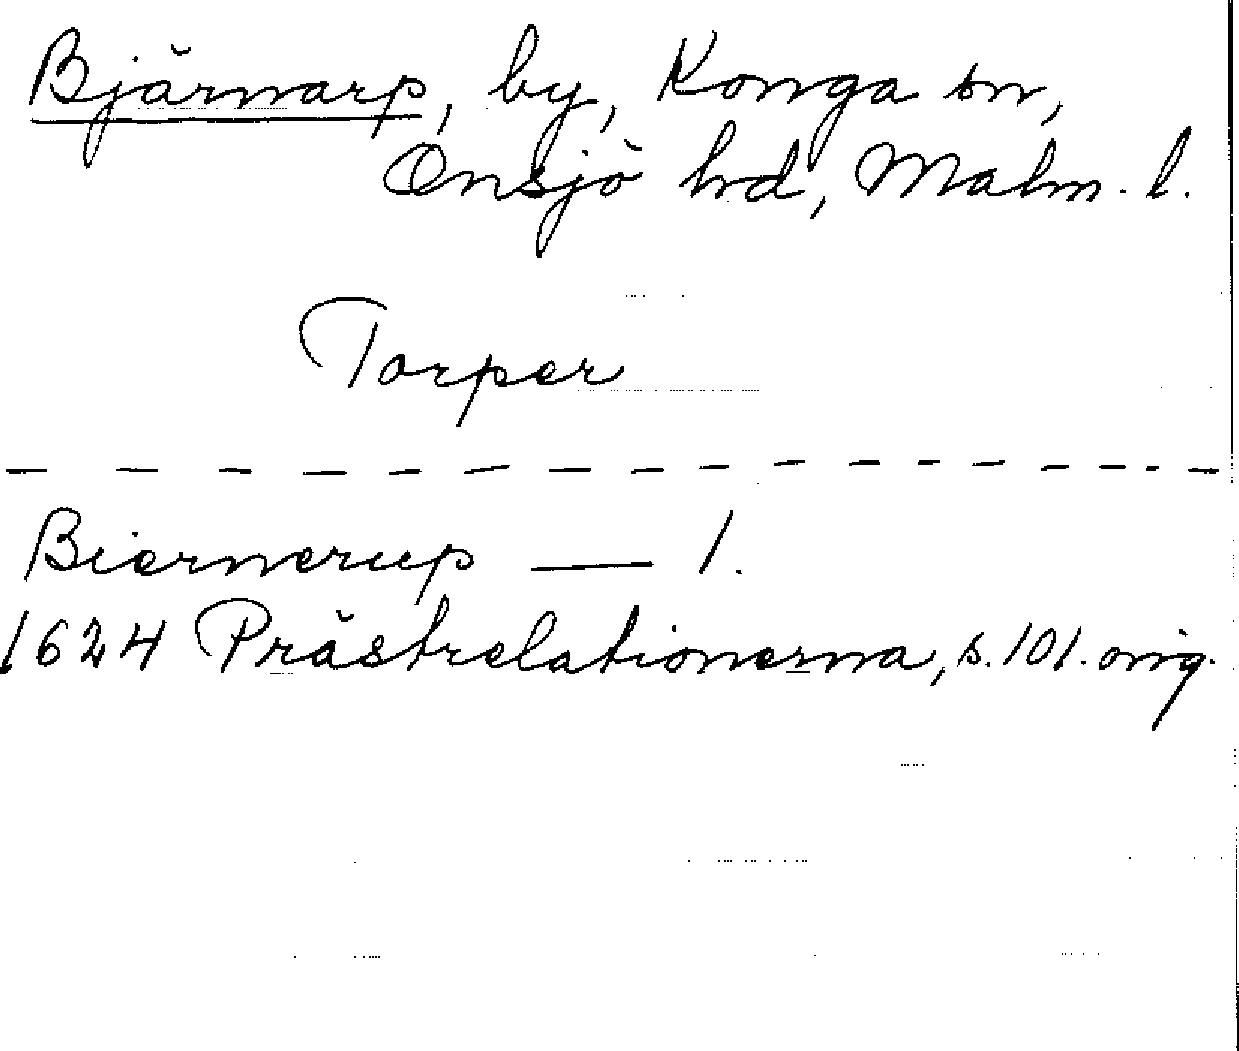 Bjärnarp, by, Konga sn,
Onsjö hrd, Malm. l.
Torper
Biernerup — 1.
1624 Prästrelationerna, s. 101. orig.